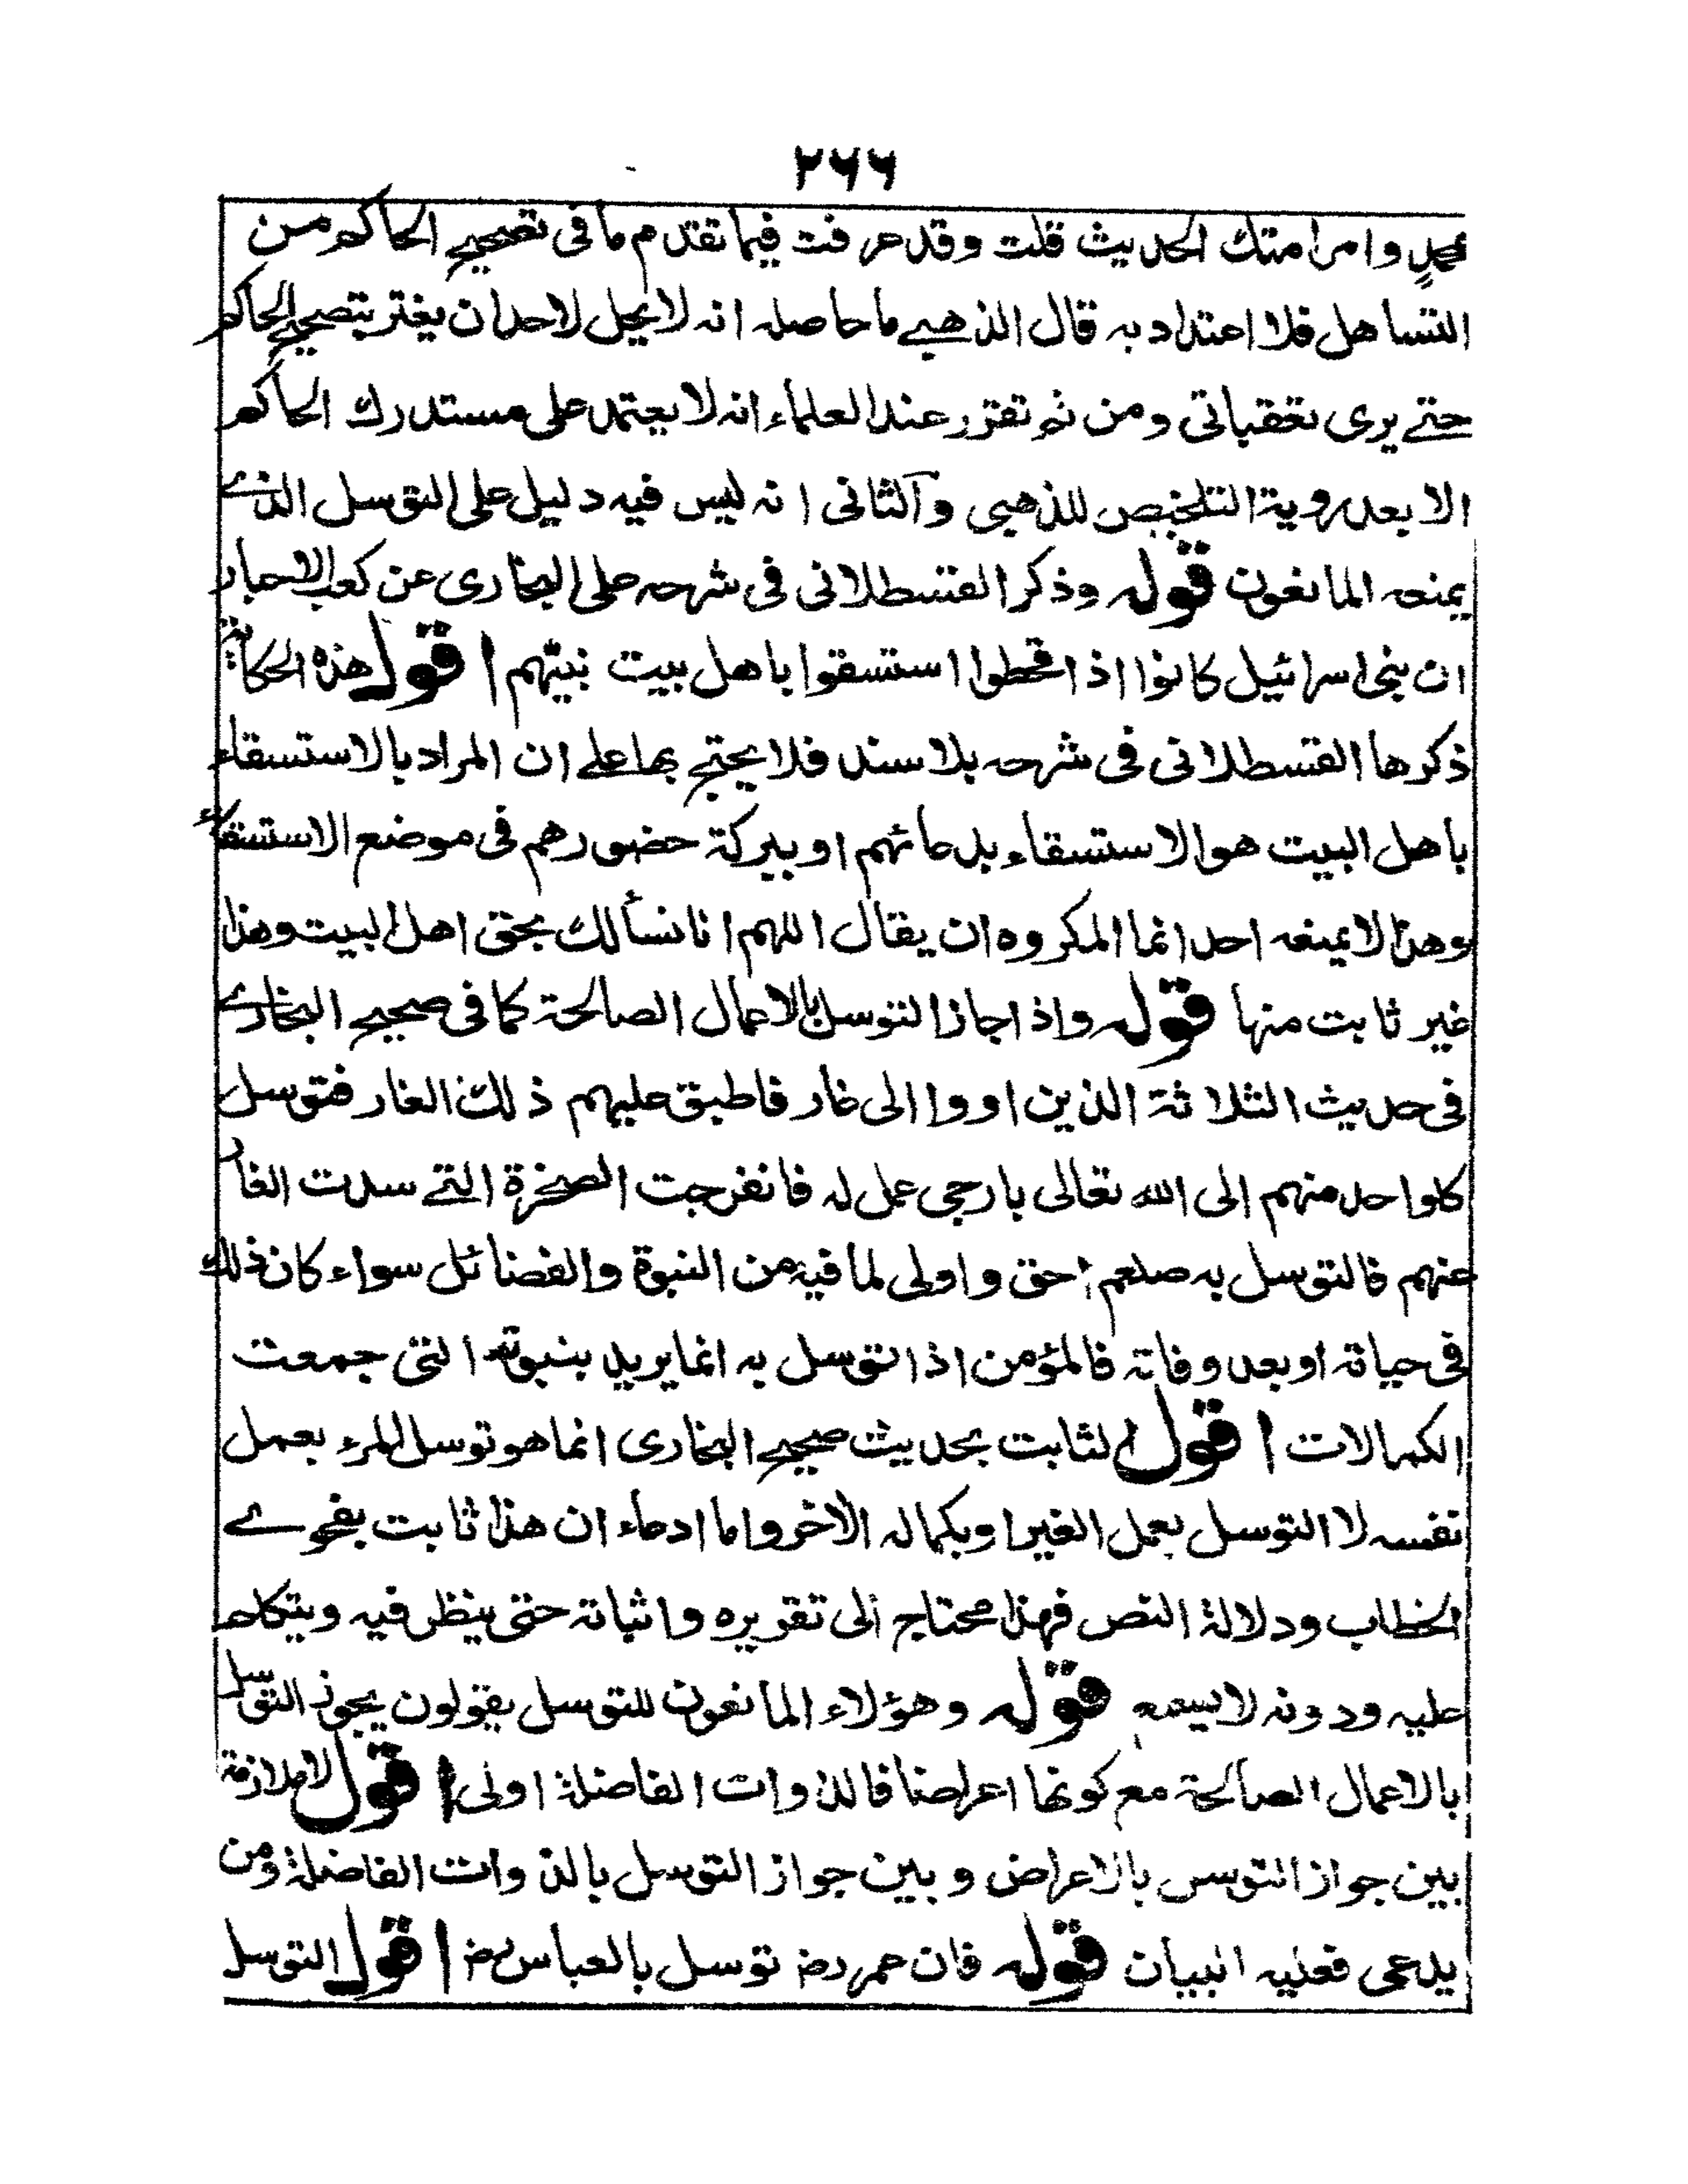 ٢٦٦
بمحمد وامر امتك الحديث قلت وقد عرفت فيما تقدم ما فى تصحيح الحاكم من
التساهل فلا اعتداد به قال الذهبے ما حاصله انه لا يحل لاحد ان يغتر بتصحيح الحاكم
حتے يرى تعقباتى ومن ثم تقرر عند العلماء انه لا يعتمد على مستدرك الحاكم
الا بعد روية التلخيص للذهبى والثانى انه ليس فيه دليل على التوسل الذے
يمنعه المانعون قوله وذكر القسطلانى فى شرحه على البخارى عن كعب الاحبار
ان بنى اسرائيل كانوا اذا قحطوا استسقوا باهل بيت نبيهم اقول هذه الحكاية
ذكرها القسطلانى فى شرحه بلا سند فلا يحتج بها علے ان المراد بالاستسقاء
باهل البيت هو الاستسقاء بدعائهم او ببركة حضورهم فى موضع الاستسقاء
وهذا لا يمنعه احد انما المكروه ان يقال اللهم انا نسألك بحق اهل البيت وهذا
غير ثابت منها قوله واذا جاز التوسل بالاعمال الصالحة كما فى صحيح البخارے
فى حديث الثلاثة الذين اووا الى غار فاطبق عليهم ذلك الغار فتوسل
كل واحد منهم الى الله تعالى بارجى عمل له فانفرجت الصخرة التے سدت الغار
عنهم فالتوسل به صلعم احق واولى لما فيه من النبوة والفضائل سواء كان ذلك
فى حياته او بعد وفاته فالمؤمن اذا توسل به انما يريد بنبوته التى جمعت
الكمالات اقول الثابت بحديث صحيح البخارى انما هو توسل المرء بعمل
نفسه لا التوسل بعمل الغير او بكماله الآخر واما ادعاء ان هذا ثابت بفحوے
الخطاب ودلالة النص فهذا محتاج الى تقريره واثباته حتى ينظر فيه ويتكلم
عليه ودونه لا يسمع قوله وهؤلاء المانعون للتوسل يقولون يجوز التوسل
بالاعمال الصالحة مع كونها اعراضا فالذوات الفاضلة اولى اقول لا ملازمة
بين جواز التوسل بالاعراض وبين جواز التوسل بالذوات الفاضلة ومن
يدعى فعليه البيان قوله فان عمر رضـ توسل بالعباس رضـ اقول التوسل